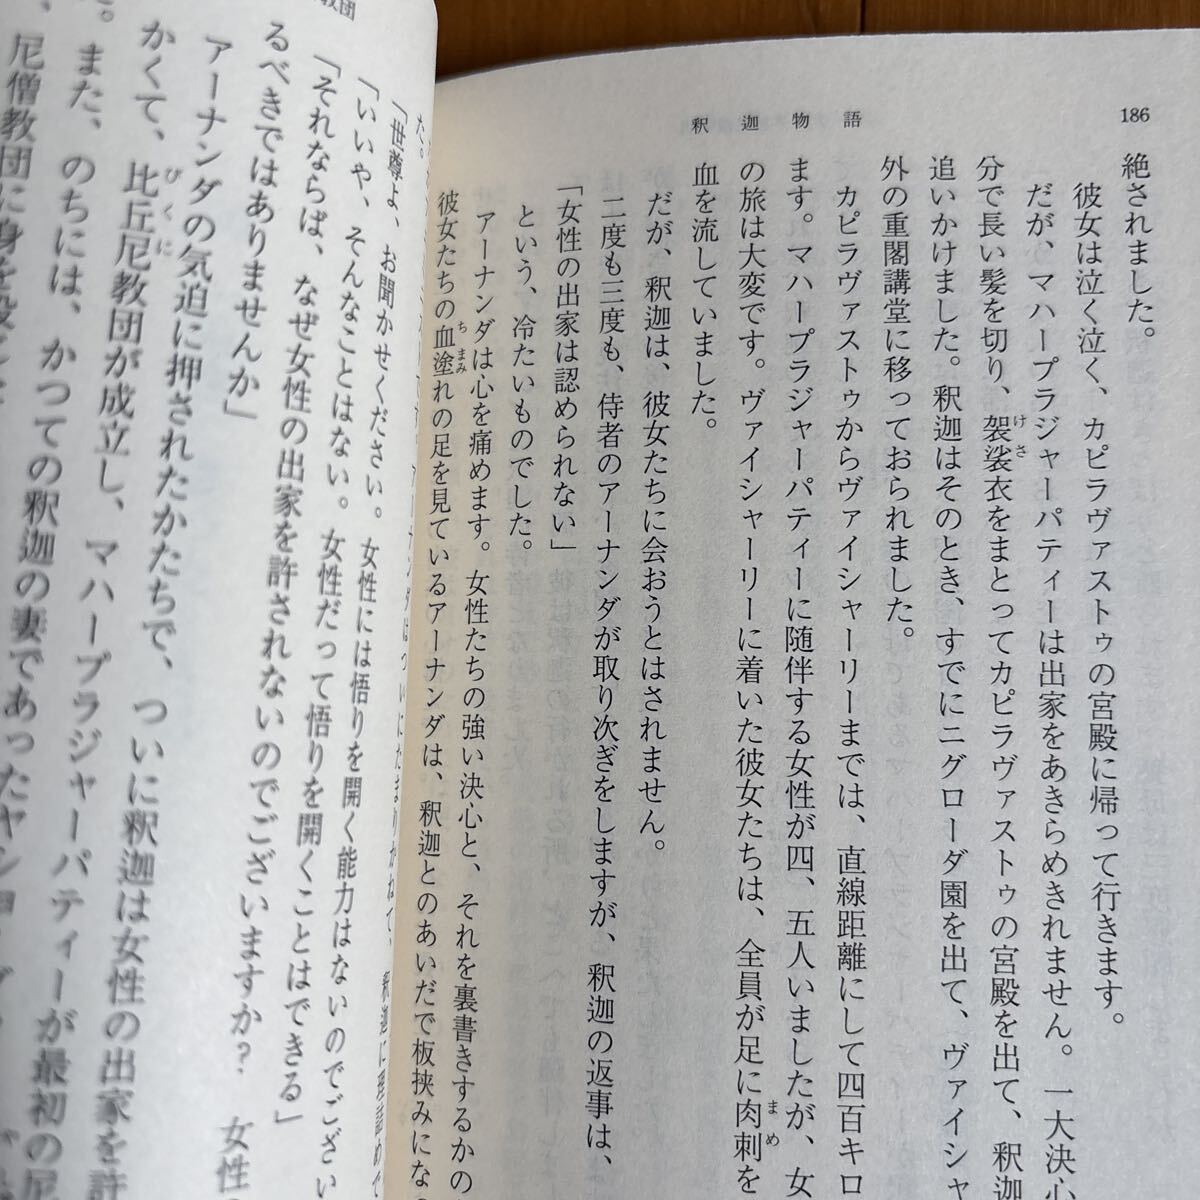 186
釈迦物語
絶されました。
彼女は泣く泣く、カピラヴァストゥの宮殿に帰って行きます。
だが、マハープラジャーパティーは出家をあきらめきれません。一大決心
分で長い髪を切り、袈裟衣をまとってカピラヴァストゥの宮殿を出て、釈迦
追いかけました。釈迦はそのとき、すでにニグローダ園を出て、ヴァイシャ
外の重閣講堂に移っておられました。
カピラヴァストゥからヴァイシャーリーまでは、直線距離にして四百キロ
ます。マハープラジャーパティーに随伴する女性が四、五人いましたが、女
の旅は大変です。ヴァイシャーリーに着いた彼女たちは、全員が足に肉刺を
血を流していました。
だが、釈迦は、彼女たちに会おうとはされません。
二度も三度も、侍者のアーナンダが取り次ぎをしますが、釈迦の返事は、
「女性の出家は認められない」
という、冷たいものでした。
アーナンダは心を痛めます。女性たちの強い決心と、それを裏書きするかの
彼女たちの血塗れの足を見ているアーナンダは、釈迦とのあいだで板挟みにな
教団
た。
ンダはついにたまりかねて、釈迦に理詰めで
「世尊よ、お聞かせください。女性には悟りを開く能力はないのでござい
「いいや、そんなことはない。女性だって悟りを開くことはできる」
「それならば、なぜ女性の出家を許されないのでございますか？ 女性
るべきではありませんか」
アーナンダの気迫に押されたかたちで、ついに釈迦は女性の出家を許
かくて、比丘尼教団が成立し、マハープラジャーパティーが最初の尼
。また、のちには、かつての釈迦の妻であったヤショーダ
尼僧教団に身を投じ